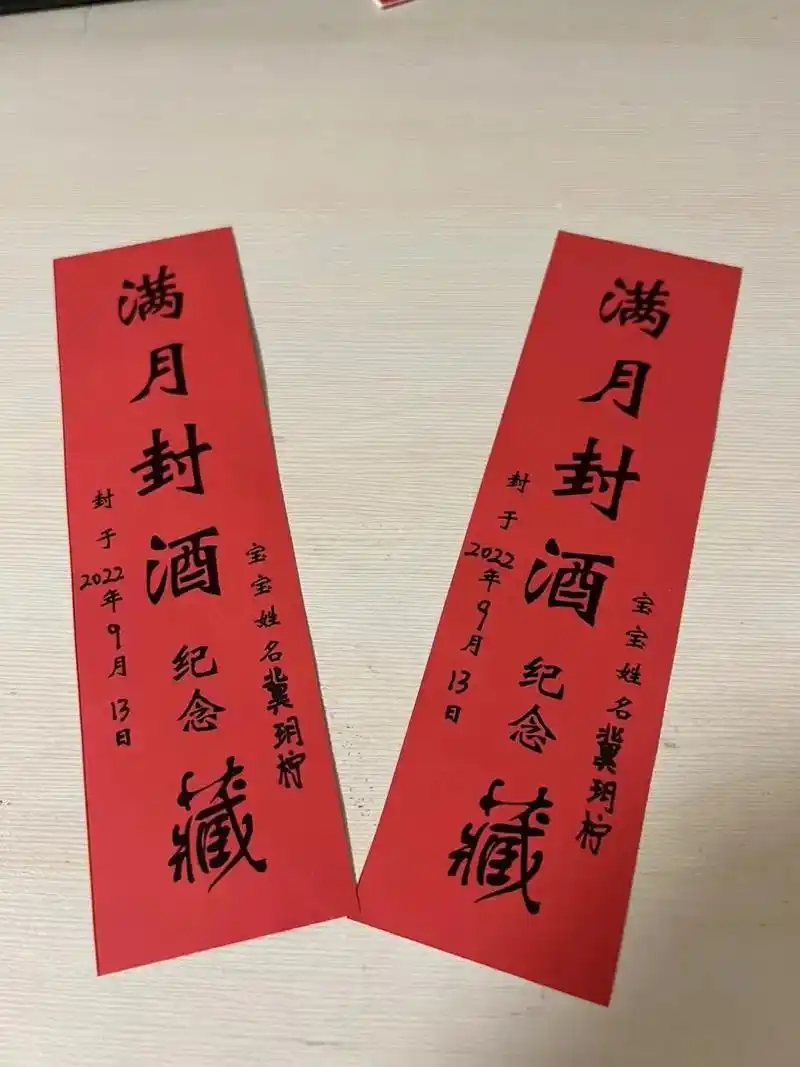 满月封酒纪念藏
宝宝姓名冀玥柠
封于2022年9月13日
满月封酒纪念藏
宝宝姓名冀玥柠
封于2022年9月13日